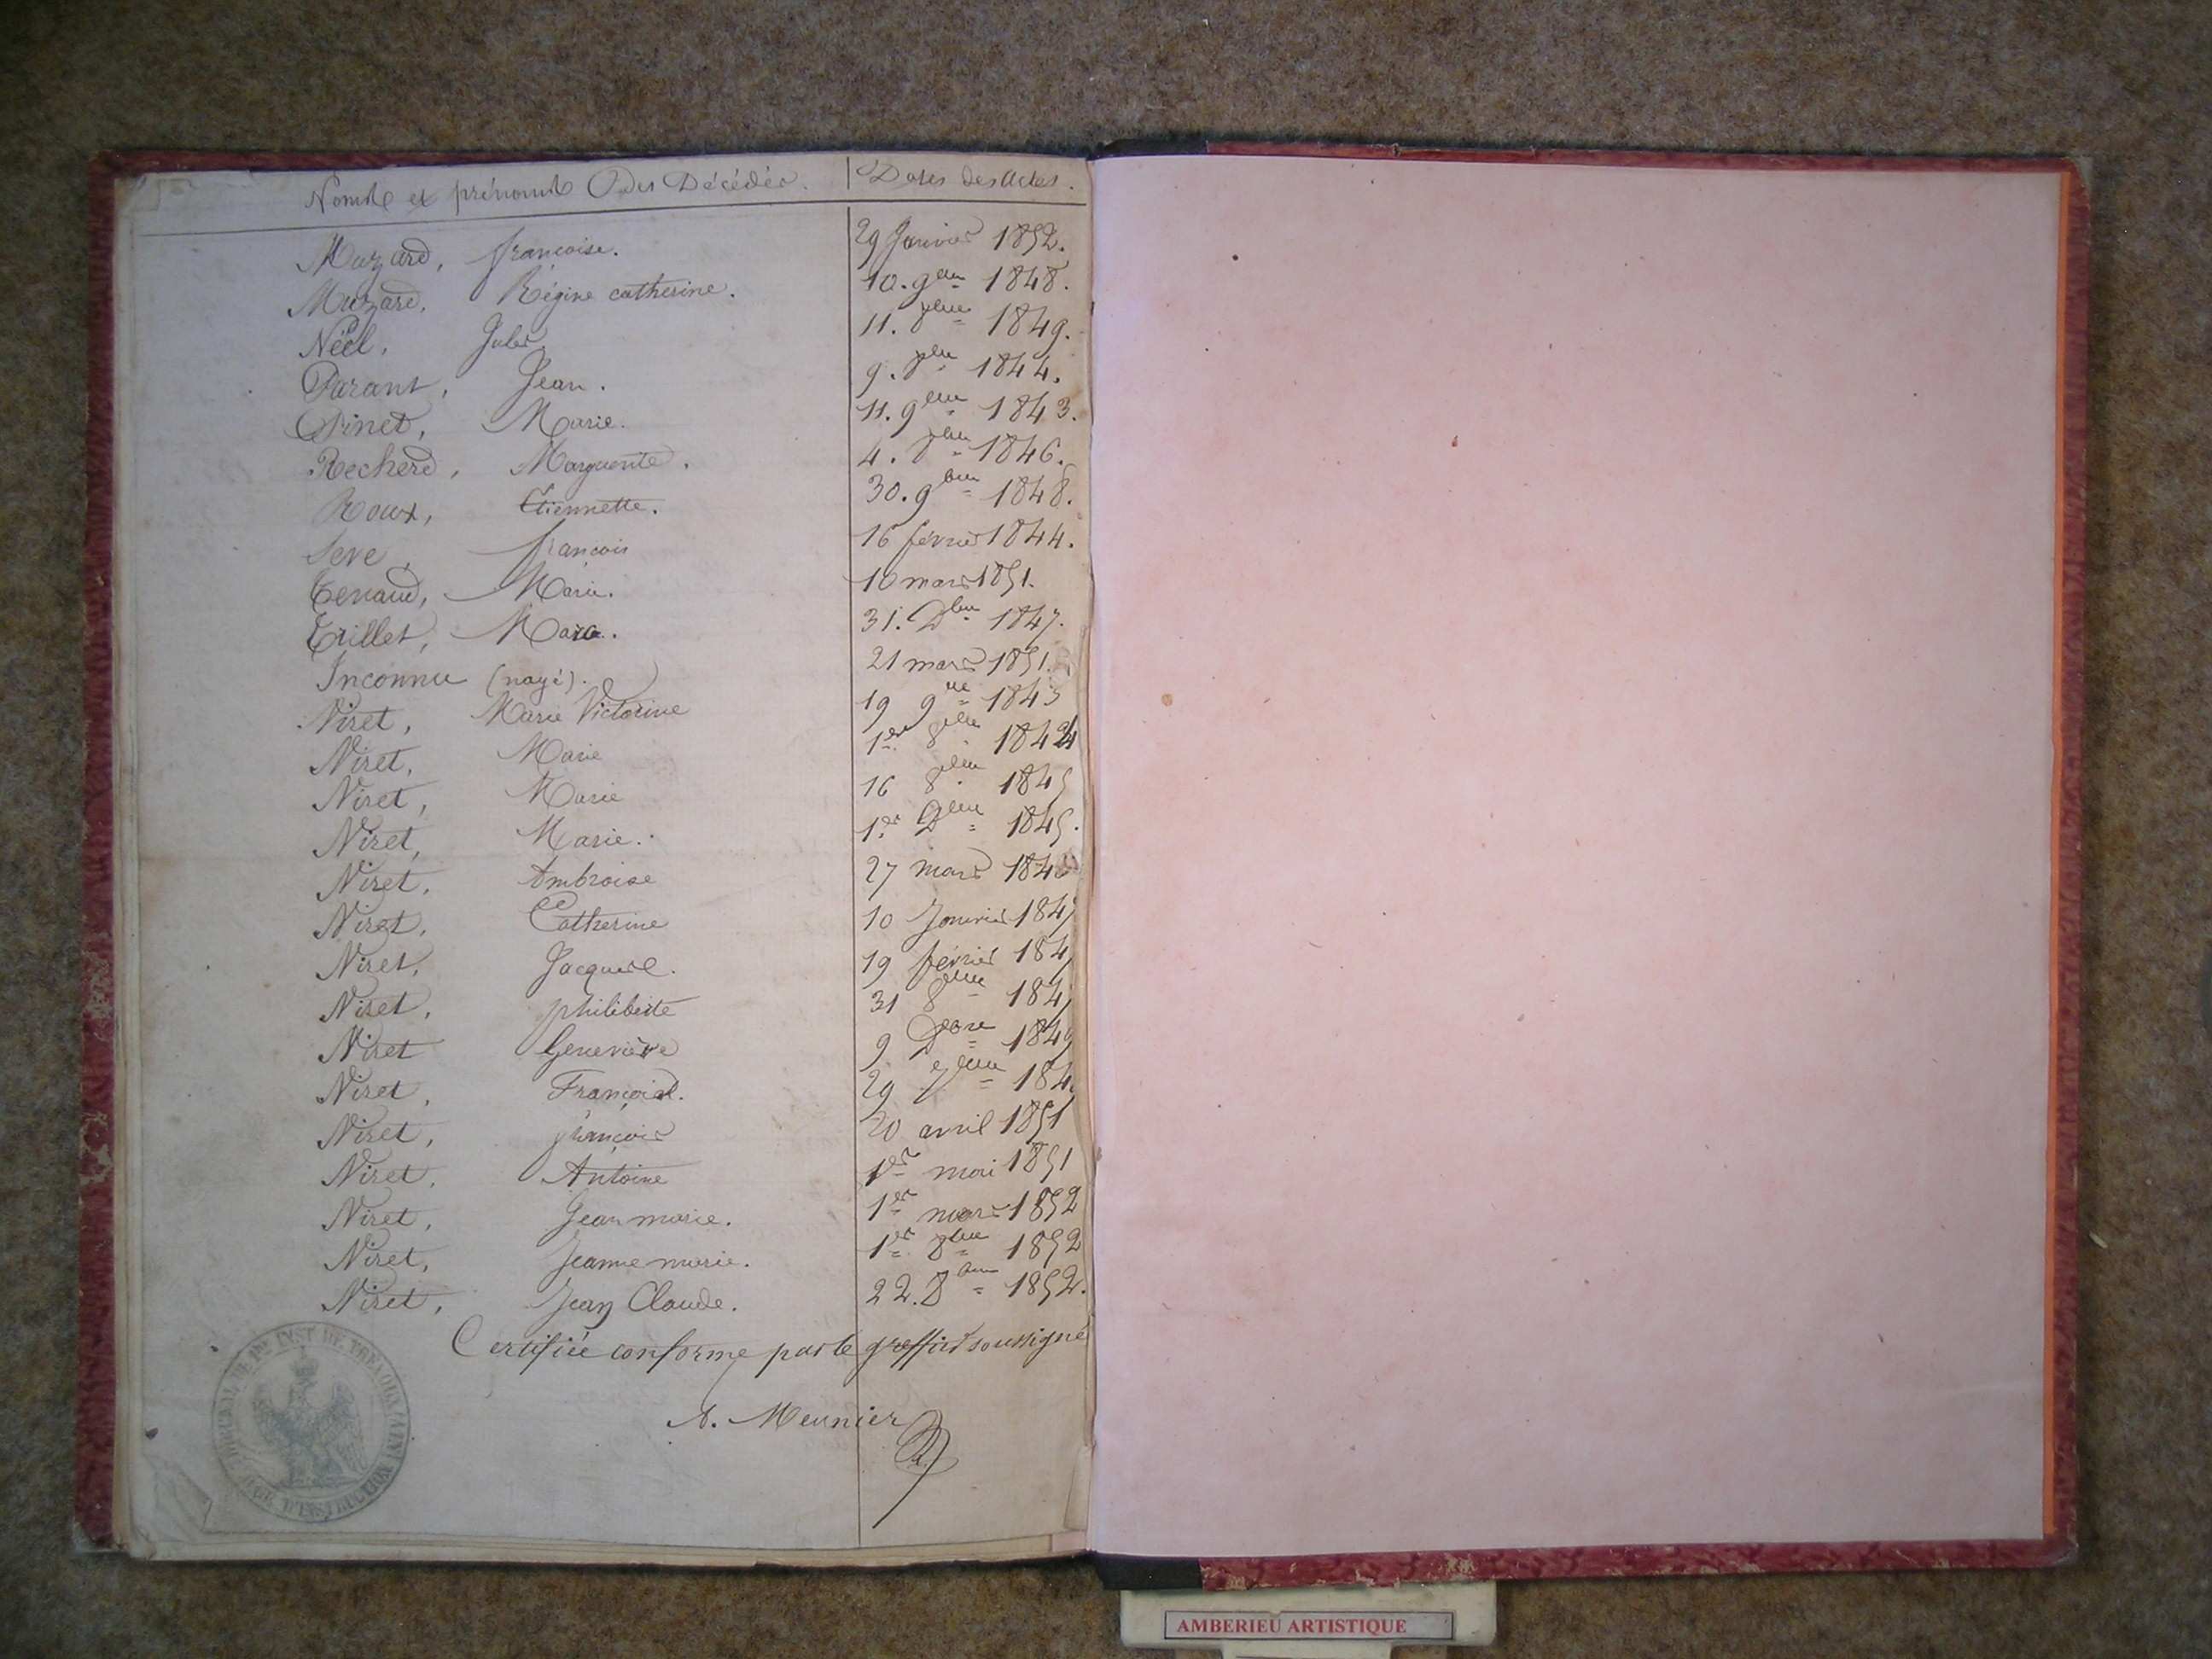 Noms et prénoms des Décédés. Dates des Actes.
Muzard, françoise. 29 Janvier 1852.
Muzard, Régine catherine. 10. 9bre 1848.
Néel, Jules 11. 8bre 1849.
Parant, Jean. 9. 8bre 1844.
Pinet, Marie. 11. 9bre 1843.
Recherd, Marguerite. 4. 8bre 1846.
Roux, Etiennette. 30. 9bre 1848.
Seve, françois 16 février 1844.
Tenaud, Marie. 10 mars 1851.
Trillet, Marie. 31. Dbre 1847.
Inconnu (noyé). 21 mars 1851.
Niret, Marie Victorine 19 9bre 1843
Niret, Marie 1er 8bre 1844
Niret, Marie 16 8bre 1845
Niret, Marie. 1er Dbre 1845.
Niret, Ambroise 27 mars 184
Niret, Catherine 10 Janvier 1847
Niret, Jacques. 19 février 184
Niret, philiberte 31 8bre 184
Niret Geneviève 9 Dbre 1849
Niret, François. 29 7bre 184
Niret, françois 20 avril 1851
Niret, Antoine 1er mai 1851
Niret, Jean marie. 1er mars 1852
Niret, Jeanne marie. 1er 8bre 1852
Niret, Jean Claude. 22. Dbre 1852.
Certifiée conforme par le greffier soussigné
A. Meunier
TRIBUNAL DE 1re INST DE TREVOUX (AIN)
JUGE D'INSTRUCTION
AMBERIEU ARTISTIQUE